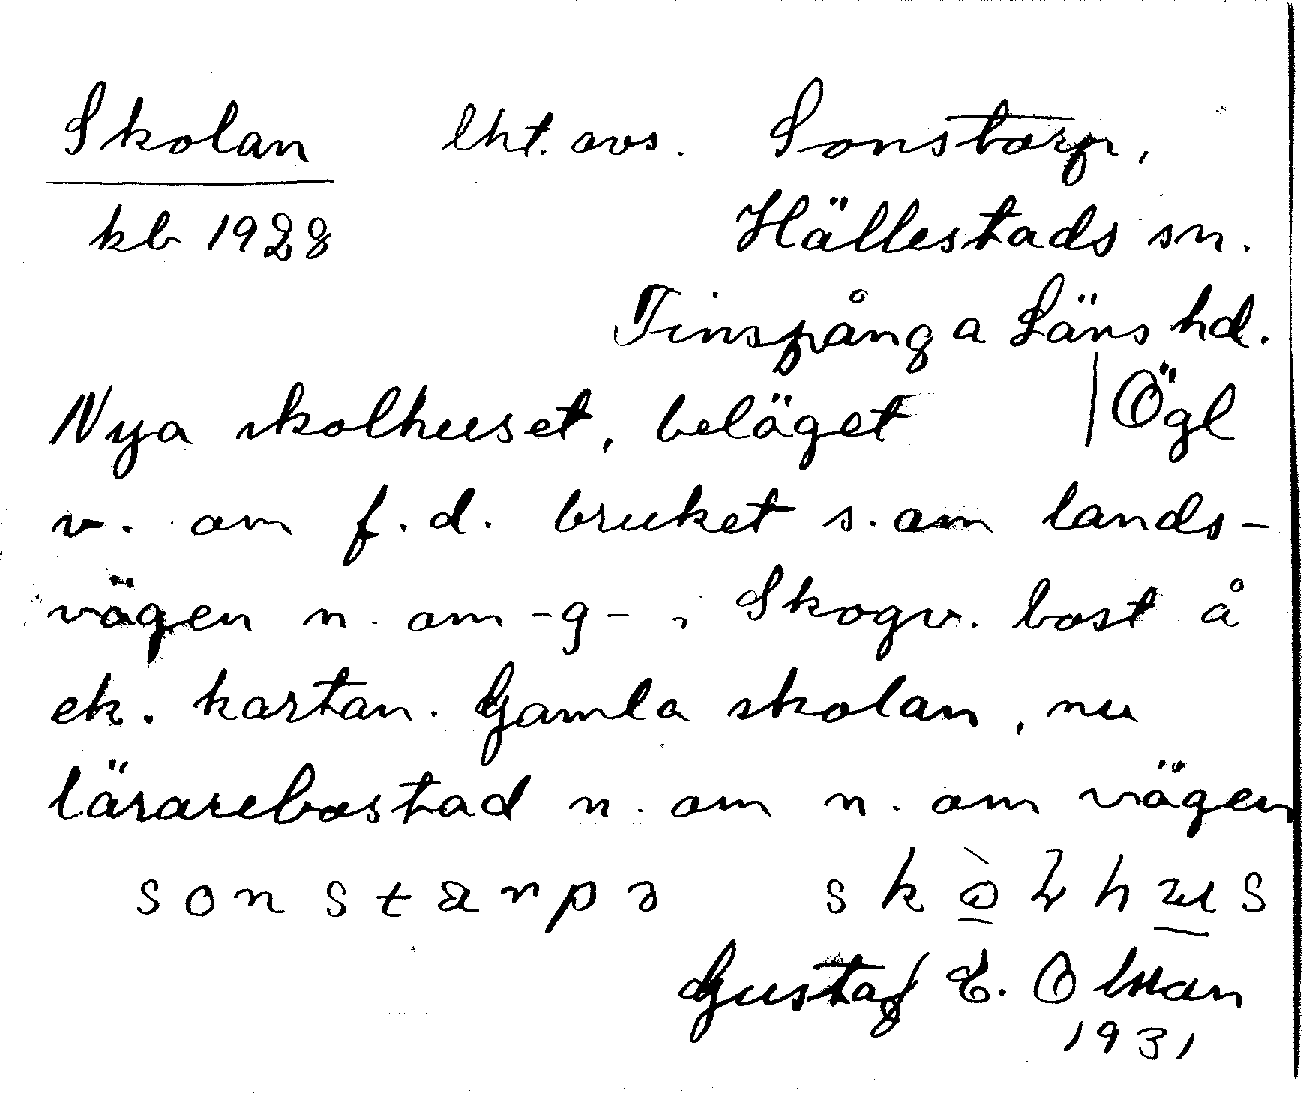 Skolan lht. avs. Sonstorp,
kb 1928 Hällestads sn.
Finspånga Läns hd.
Nya skolhuset, beläget | Ögl
v. om f.d. bruket s. om lands-
vägen n. om -g- i Skogv. bost å
ek. kartan. Gamla skolan, nu
lärarebostad n. om n. om vägen
sonstarpə
Gustaf E. Olsson
1931